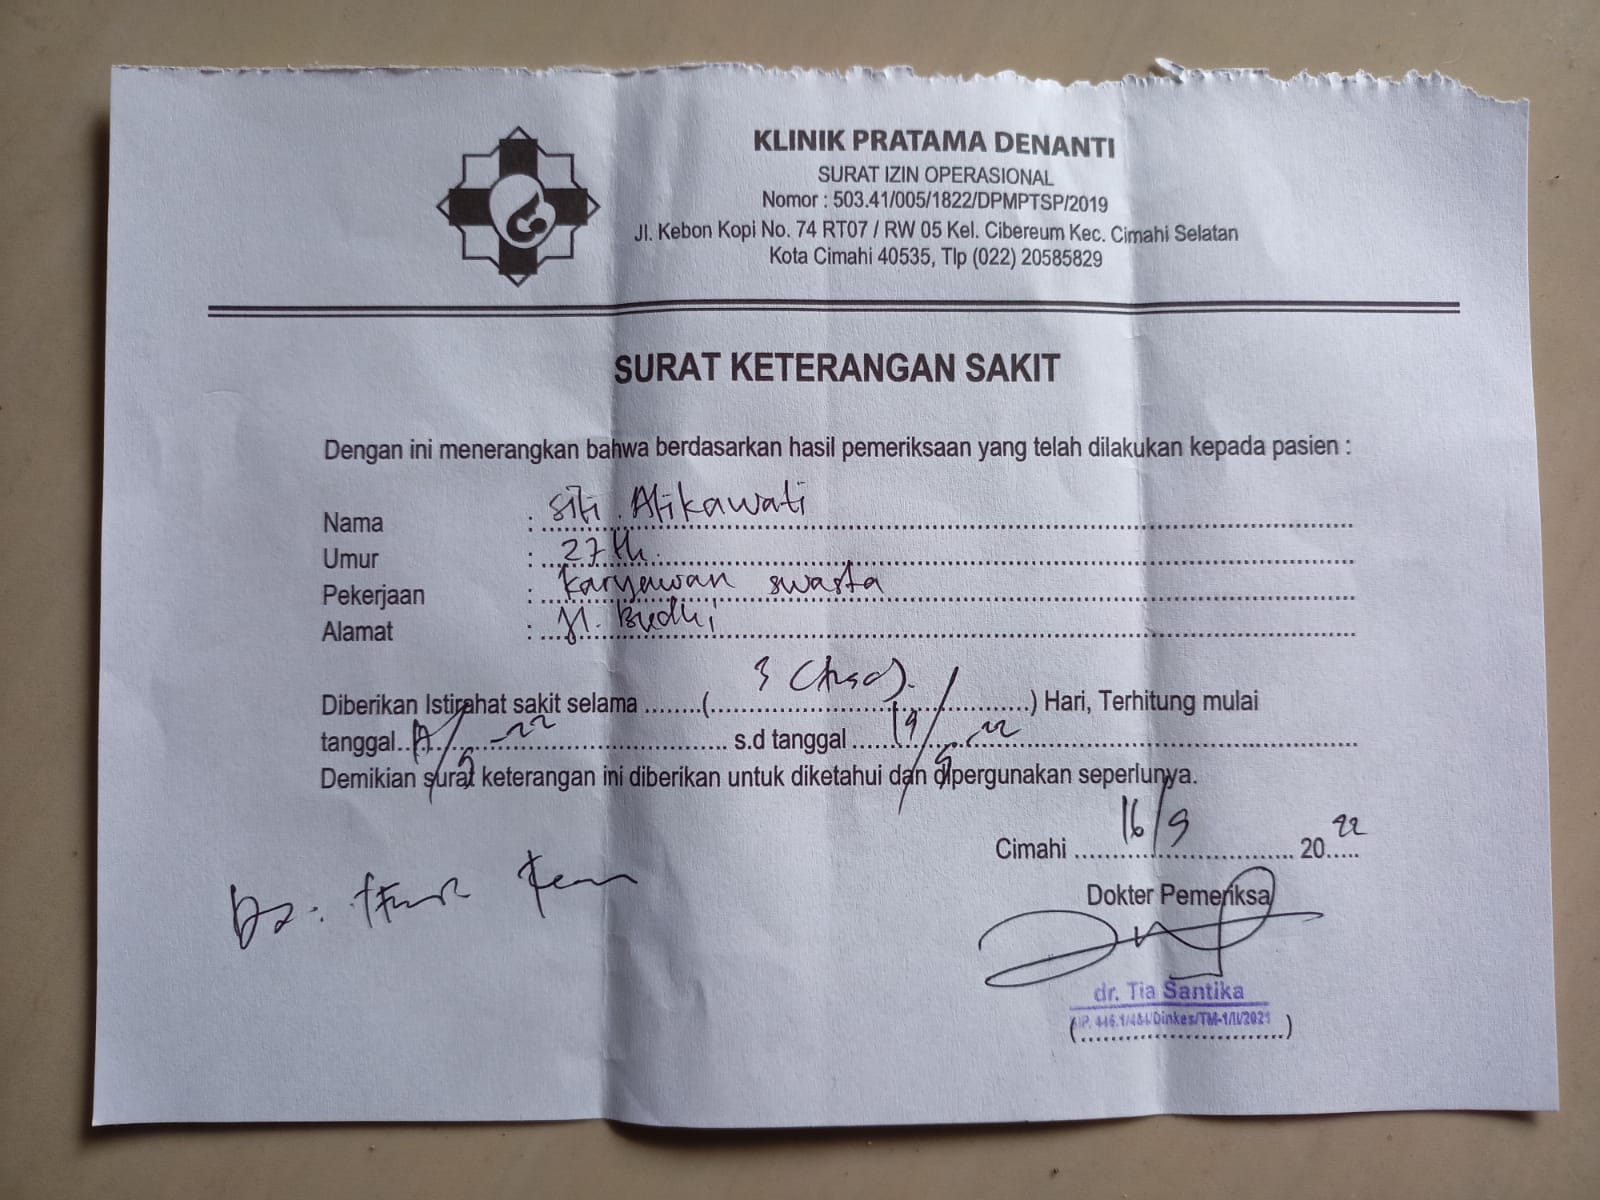 KLINIK PRATAMA DENANTI
SURAT IZIN OPERASIONAL
Nomor : 503.41/005/1822/DPMPTSP/2019
Jl. Kebon Kopi No. 74 RT07 / RW 05 Kel. Cibereum Kec. Cimahi Selatan
Kota Cimahi 40535, Tlp (022) 20585829
SURAT KETERANGAN SAKIT
Dengan ini menerangkan bahwa berdasarkan hasil pemeriksaan yang telah dilakukan kepada pasien :
Nama : Siti Atikawati
Umur : 27 th
Pekerjaan : Karyawan swasta
Alamat : Jl. Budhi
Diberikan Istirahat sakit selama ........(3 ............) Hari, Terhitung mulai
tanggal.. /9-22 s.d tanggal 19/9-22
Demikian surat keterangan ini diberikan untuk diketahui dan dipergunakan seperlunya.
Cimahi 16/9 2022
Dokter Pemeriksa
dr. Tia Santika